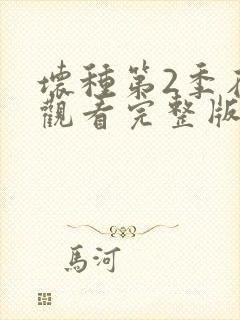 壞種第2季在
觀看完整版
馬河